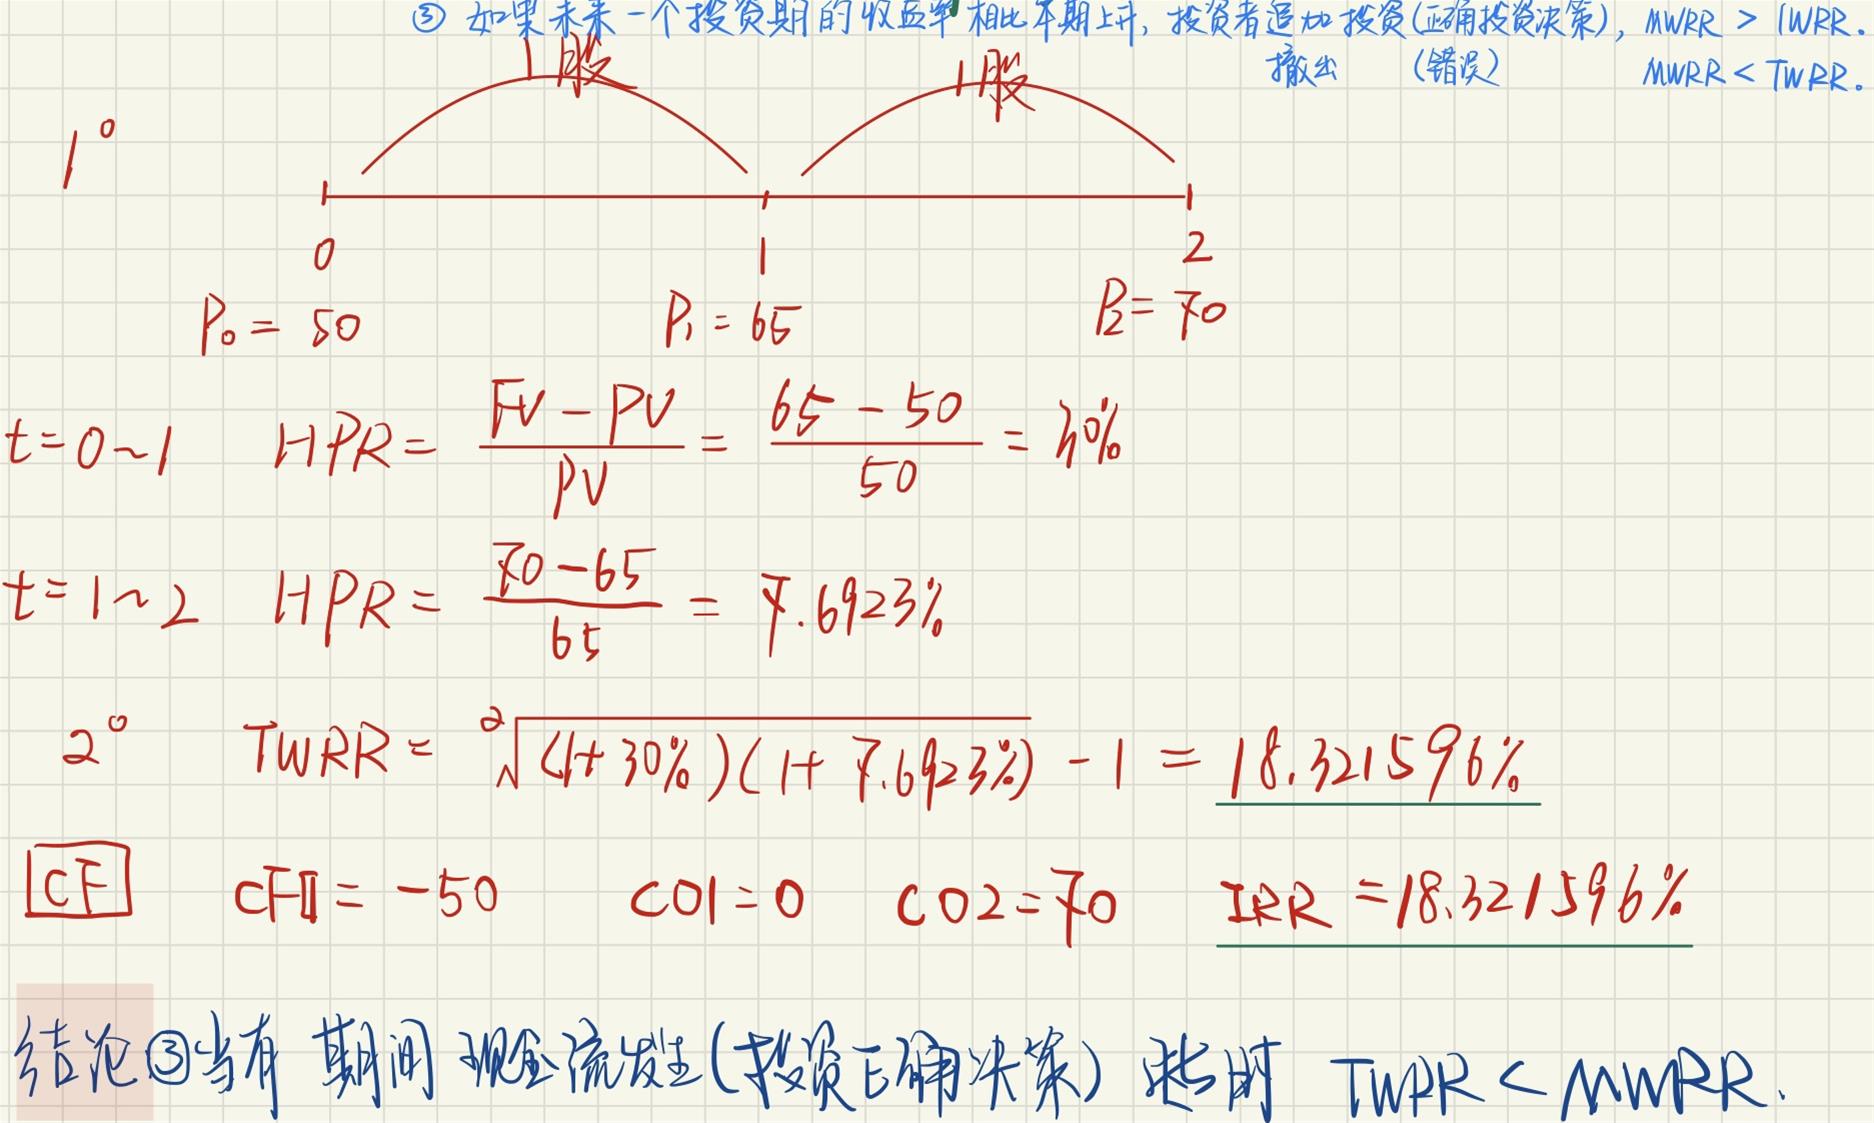 ③ 如果未来一个投资期的收益率相比本期上升, 投资者追加投资(正确投资决策), MWRR > TWRR.
撤出 (错误) MWRR < TWRR.
1股 1股
1°
0 1 2
P₀ = 50 P₁ = 65 P₂ = 70
t = 0~1 HPR = (FV - PV)/PV = (65 - 50)/50 = 30%
t = 1~2 HPR = (70 - 65)/65 = 7.6923%
2° TWRR = ²√(1+30%)(1+7.6923%) - 1 = 18.321596%
CF CF0 = -50 C01 = 0 C02 = 70 IRR = 18.321596%
结论③当有期间现金流发生(投资正确决策) 时 TWRR < MWRR.